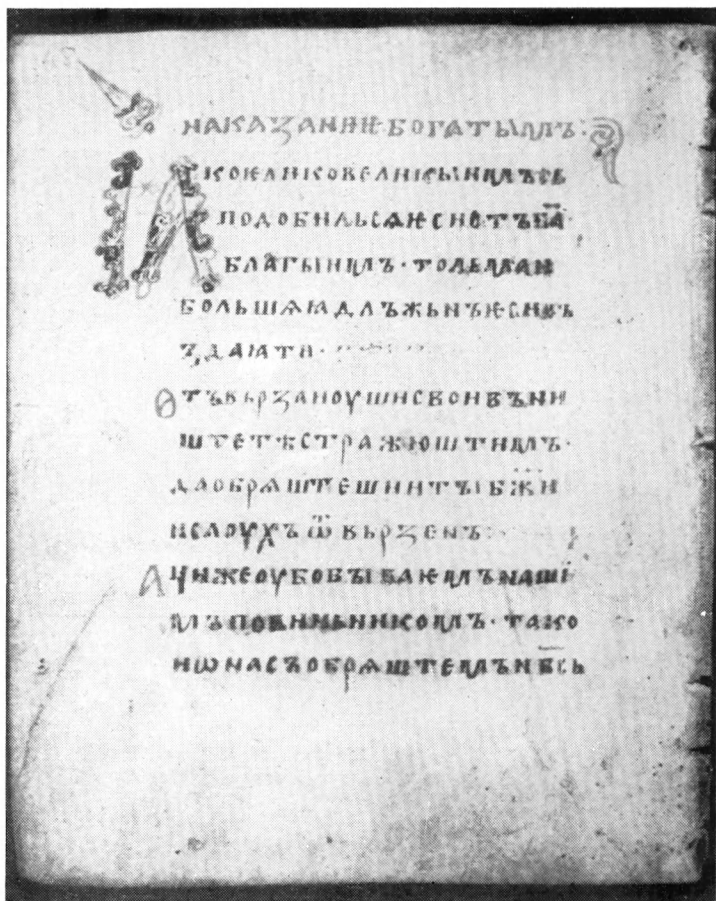 НАКАꙀАНИѤ БОГАТЫИМЪ:
ꙖКОѤЛИКОВЕЛИКЫИМЪСЪ
ПОДОБИЛЬСѦѤСИОТЪБ҃А·
БЛАГЫИМЪ·ТОЛЬМАИ
БОЛЬШѦꙖДЛЪЖЬНЪѤСИВЪ
ꙀДАꙖТИ·
ѲТЪВЬРꙀАИОУШИСВОИВЪНИ
ШТЕТѢСТРАЖЮШТИИМЪ·
ДАОБРѦШТЕШИИТЫБЖ҃И
ИСЛОУХЪѾВЬРꙀЕНЪ:
АЦИЖЕОУБОБЫВАѤМЪНАШИ
МЪПОВИНЬНИКОМЪ·ТАКО
ИѠНАСЪОБРѦШТЕМЪНБ҃СЬ